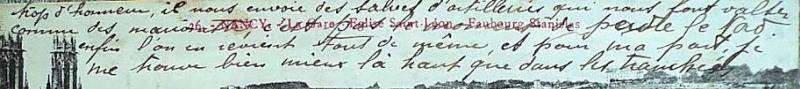 trop d'honneur, il nous envoie des salves d'artillerie qui nous font valser
26. - NANCY - La Gare - Eglise Saint-Léon - Faubourg Stanislas
comme des c'est pas le perdre le
enfin l'on en revient tout de même, et pour ma part, je
me trouve bien mieux là haut que dans les tranchées